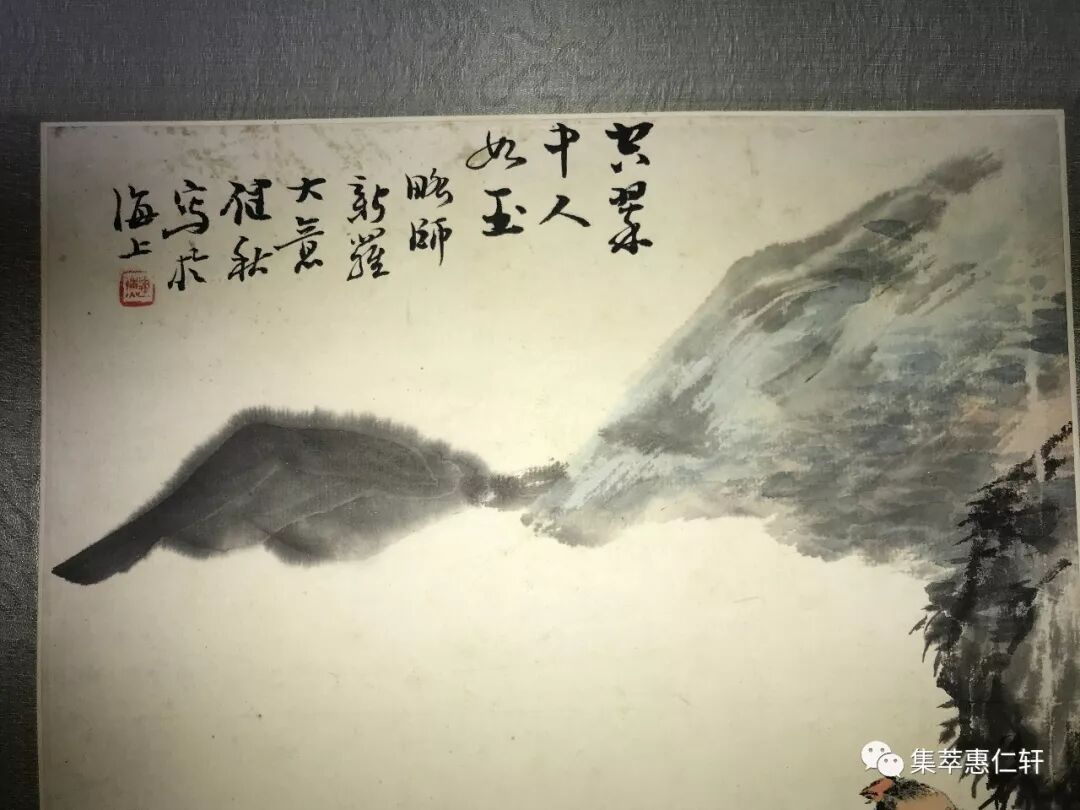 空翠
中人
如玉
略師
新羅
大意
健秋
寫於
海上
集萃惠仁轩